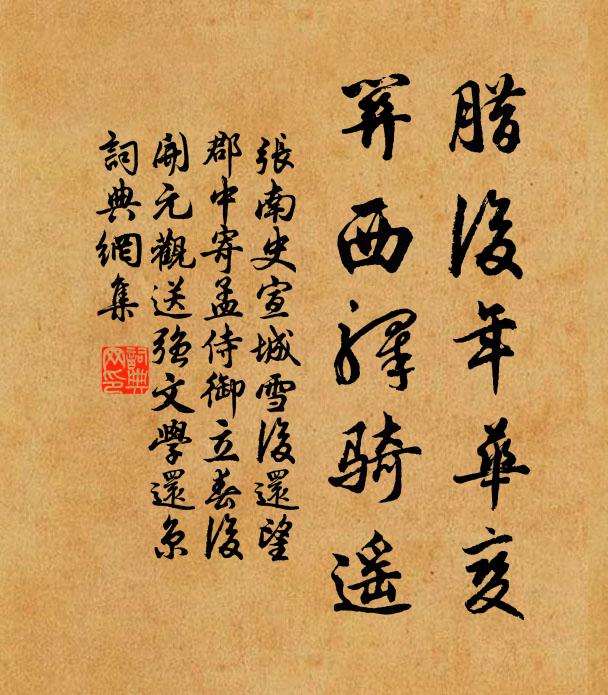 腊後年華变
關西驛騎遙
張南史宣城雪後還望
郡中寄孟侍御立春後
開元觀送強文學還京
詞典網集
詞典网印